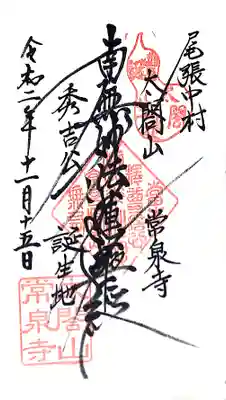 尾張中村
太閤山
常泉寺
南無妙法蓮華経
秀吉公
誕生地
令和二年十一月十五日
太閤
太閤山
常泉寺